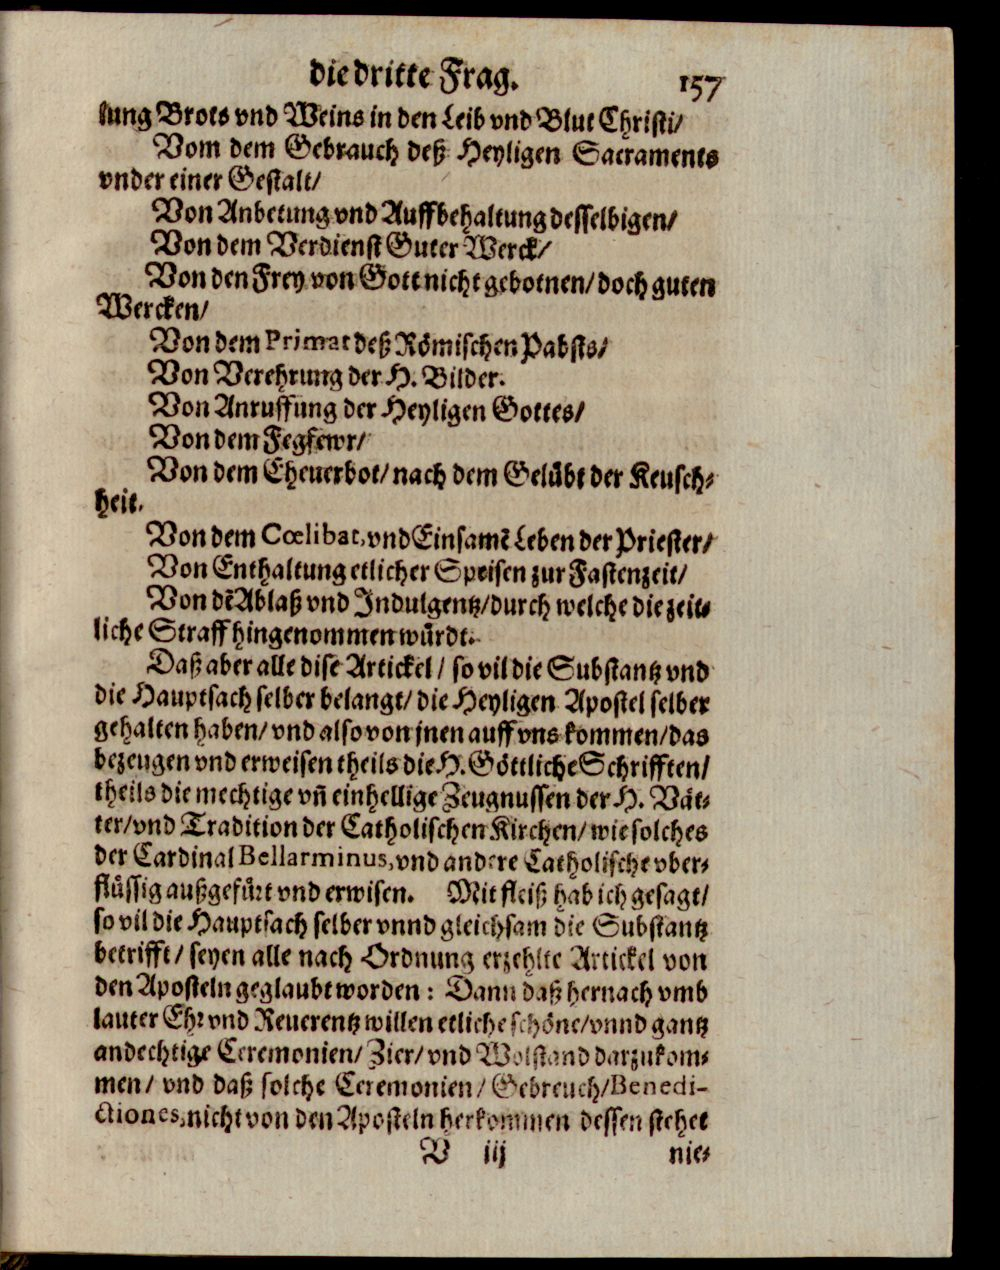 die dritte Frag. 157
lung Brots vnd Weins in den Leib vnd Blut Christi/
Vom dem Gebrauch deß Heyligen Sacraments
vnder einer Gestalt/
Von Anbetung vnd Auffbehaltung desselbigen/
Von dem Verdienst Guter Werck/
Von den Frey von Gott nicht gebotnen/ doch guten
Wercken/
Von dem Primat deß Römischen Pabsts/
Von Verehrung der H. Bilder.
Von Anruffung der Heyligen Gottes/
Von dem Fegfewr/
Von dem Eheuerbot/ nach dem Gelübt der Keusch-
heit.
Von dem Cœlibat, vnd Einsamẽ Leben der Priester/
Von Enthaltung etlicher Speisen zur Fastenzeit/
Von dẽ Ablaß vnd Indulgentz/ durch welche die zeit-
liche Straff hingenommen würdt.
Daß aber alle dise Artickel / so vil die Substantz vnd
die Hauptsach selber belangt/ die Heyligen Apostel selber
gehalten haben/ vnd also von jnen auff vns kommen/ das
bezeugen vnd erweisen theils die H. Göttliche Schrifften/
theils die mechtige vñ einhellige Zeugnussen der H. Vät-
ter/ vnd Tradition der Catholischen Kirchen/ wie solches
der Cardinal Bellarminus, vnd andere Catholische vber-
flüssig außgefürt vnd erwisen. Mit fleiß hab ich gesagt/
so vil die Hauptsach selber vnnd gleichsam die Substantz
betrifft / seyen alle nach Ordnung erzehlte Artickel von
den Aposteln geglaubt worden : Dann daß hernach vmb
lauter Ehr vnd Reuerentz willen etliche schöne/ vnnd gantz
andechtige Ceremonien/ Zier/ vnd Wolstand darzukom-
men/ vnd daß solche Ceremonien/ Gebreuch/ Benedi-
ctiones, nicht von den Aposteln herkommen dessen stehet
V iij nie-